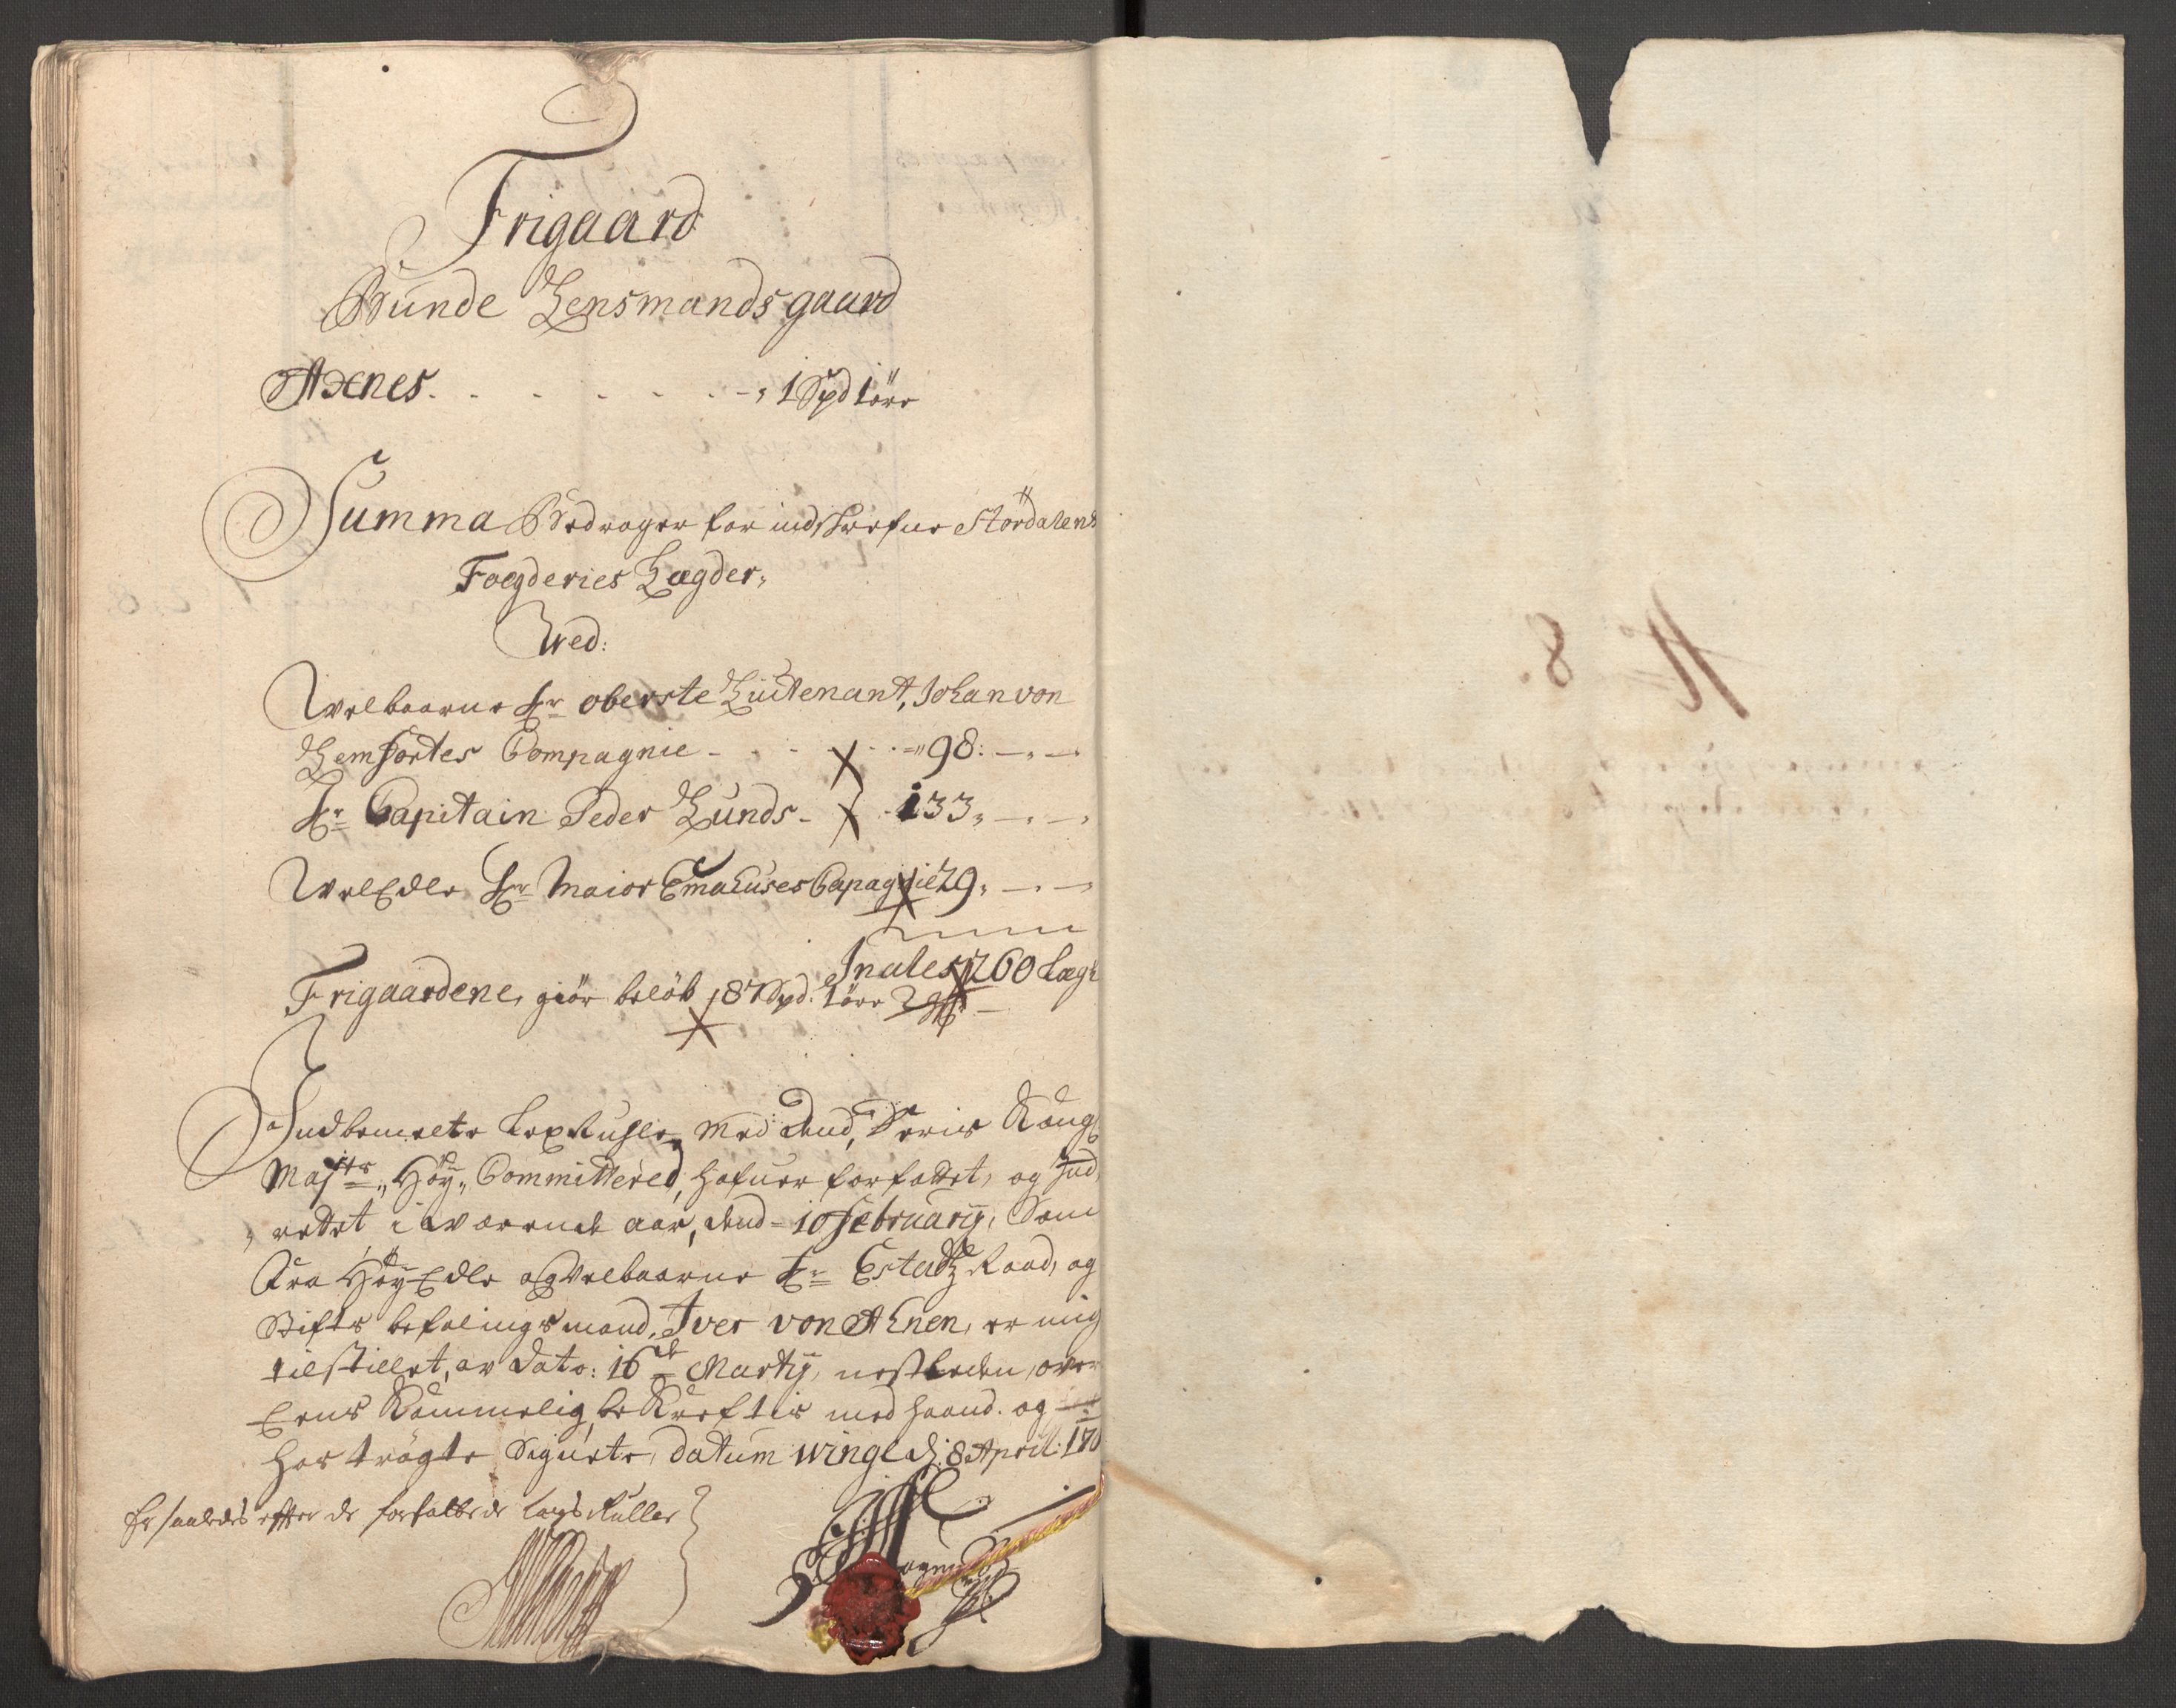 Frigaard
Bunde Lensmands gaard
Axnes. . . . . . . - 1 Spd 1 öre
Summa Bedrager for indskrefne Stördalens
Fogderies Lægder,
Wed:
Welbaarne Hr oberste Lüitenant, Johan von
Lemfortes Compagnie - . . - . . 98: — , —
Hr Capitain Peder Lunds - 133, — , —
WelEdle Hr Maior Emahuses Compagnie 29, — , —
In ales 260 Læg
Frigaardene, giör beløb 18 Spd. 1 öre
Indbemelte med dend, Deris Kongl
Majts, Höy, Committered, hafuer forfattet, og Ind,
, rettet i werende aar, dend 10 februarij, Som
fra HöyEdle og Welbaarne Hr Estatz Raad, og
Stifts befalings mand, Iver von Ahnen, er mig
tilstillet, av Dato: 16de Martij, nestleden, over
Eens kommelig, bekreftis med haand. og
hos trögte Signete, datum Winge d: 8 April: 170
Er saaledes efter de forfattede Lægs Ruller
No 8.